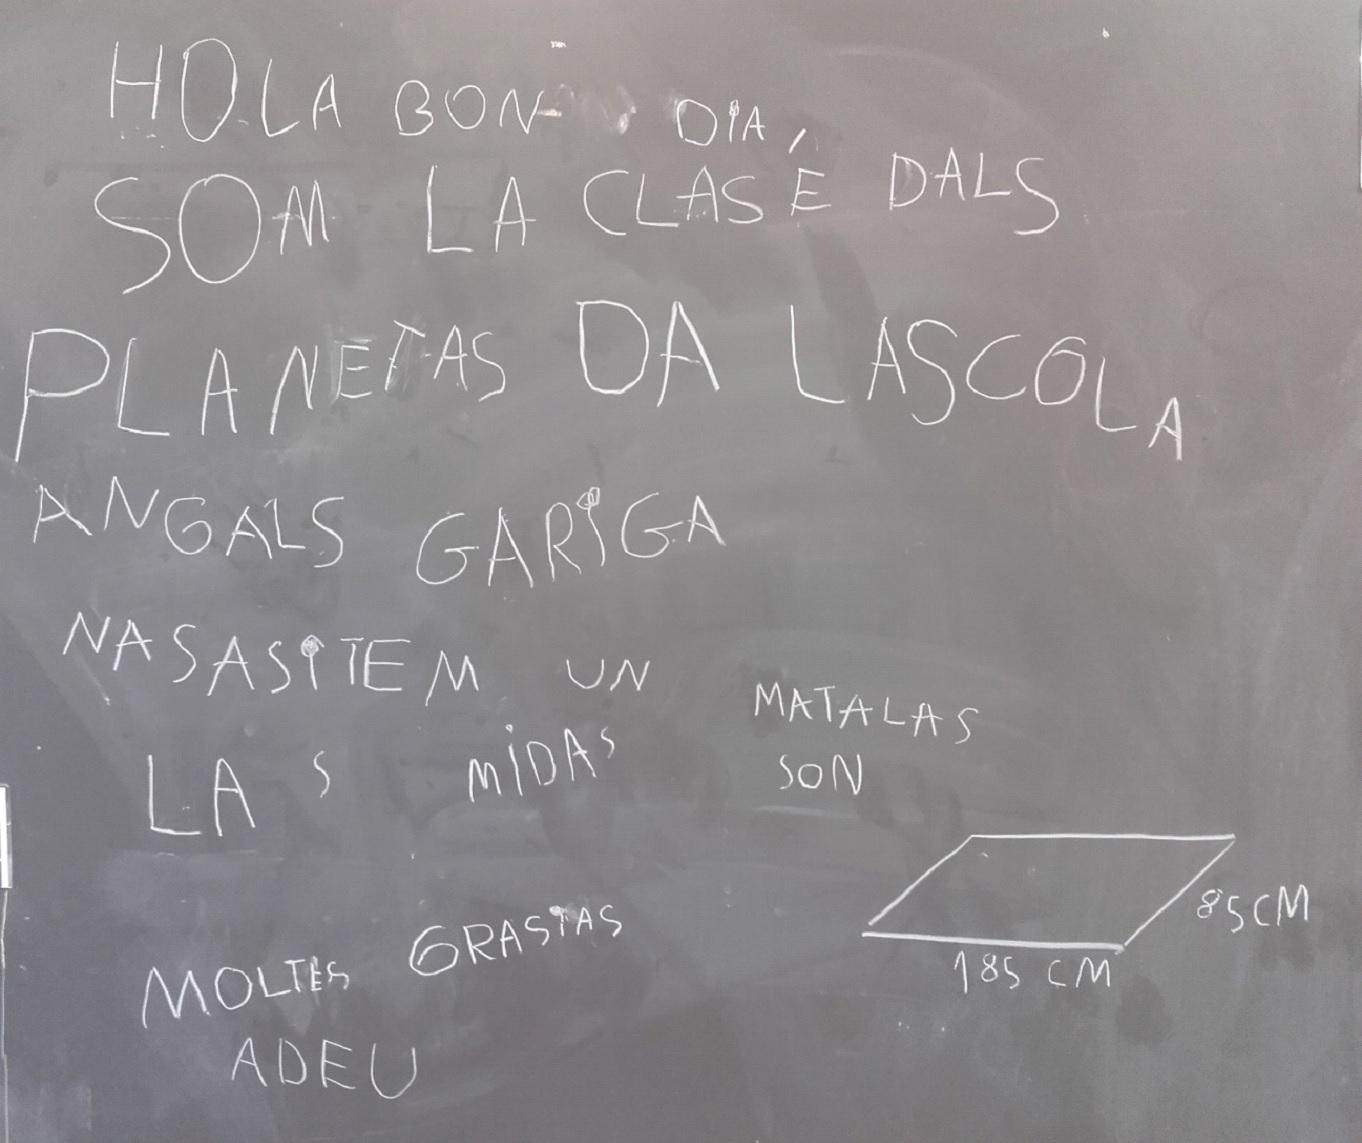 HOLA BON DIA,
SOM LA CLASE DALS
PLANETAS DA LASCOLA
ANGALS GARIGA
NASASITEM UN MATALAS
LAS MIDAS SON
85 CM
185 CM
MOLTES GRASIAS
ADEU